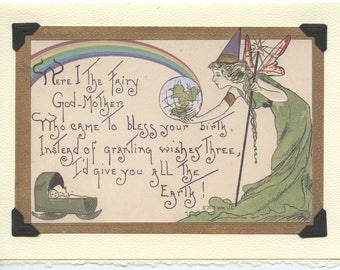 Were I the Fairy
God-Mother
Who came to bless your birth,
Instead of granting wishes three,
I'd give you all the
Earth!